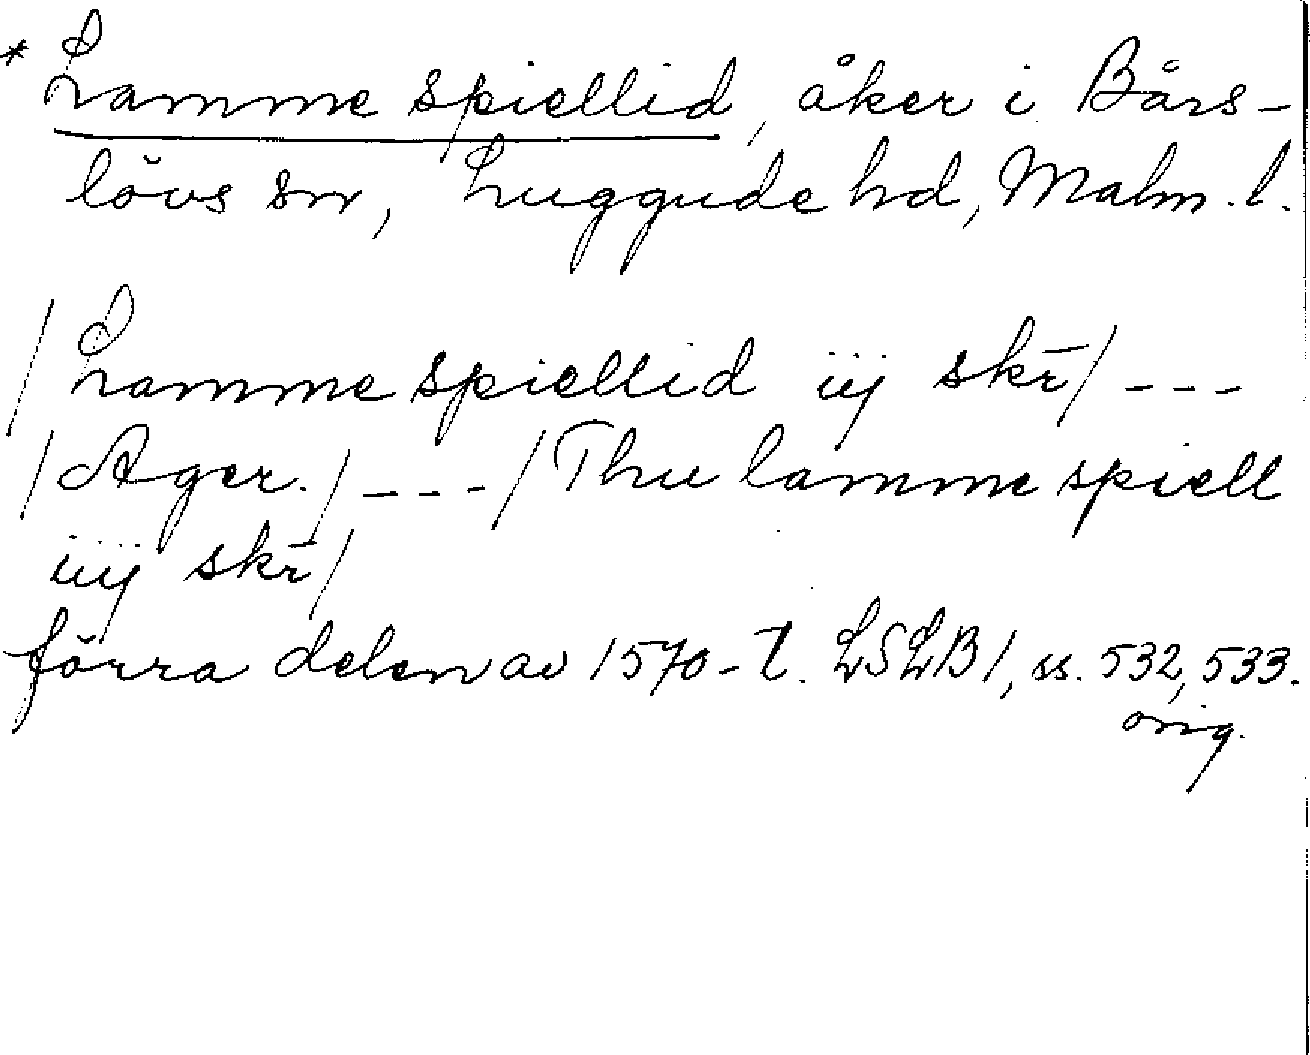 * Lamme spiellid, åker i Bårs-
lövs sn, Luggude hd, Malm. l.
/ Lamme spiellid iij skr̄ / - - -
/ Ager. / - - - / Thu lamme spiell
iiij skr̄ /
förra delen av 1570-t. LSLB 1, ss. 532, 533.
orig.